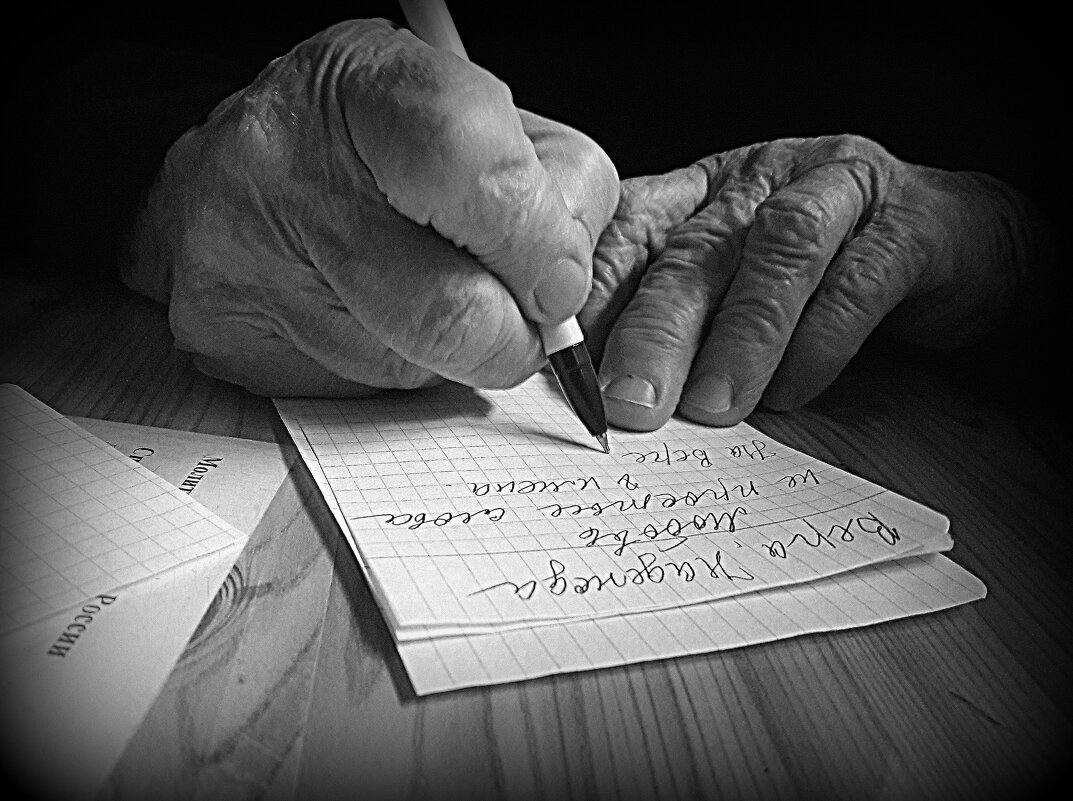 Вера, Надежда
Любовь
не простые слова
и имена.
На Вере
Молит
России